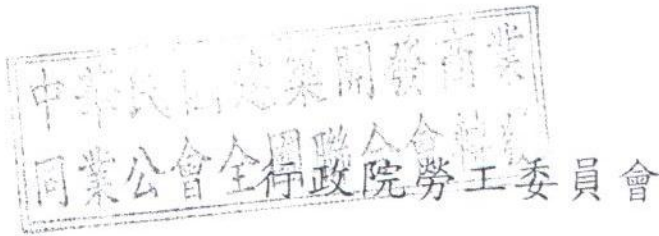 中華民國建築開發商業
同業公會全國聯合會
行政院勞工委員會